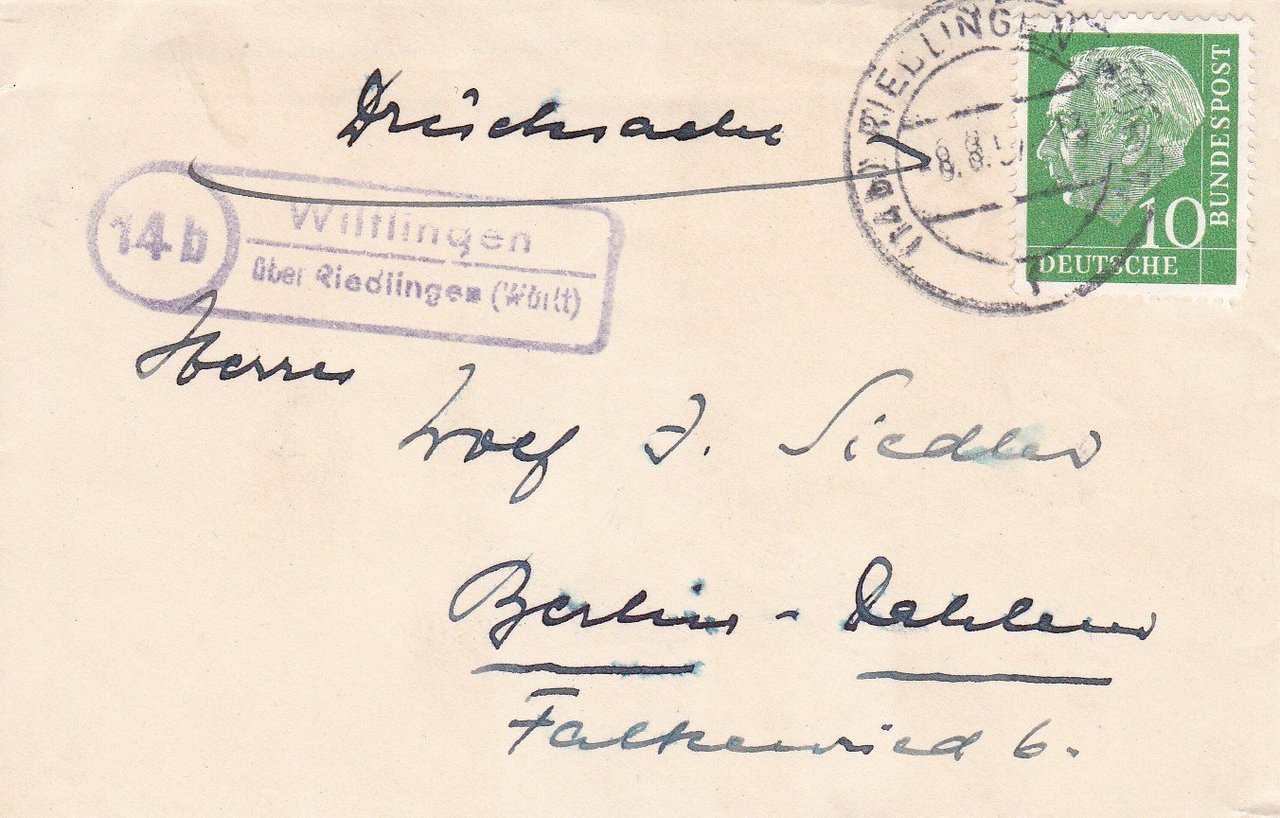 Drucksache
14b
Wilflingen
über Riedlingen (Württ)
(14b) RIEDLINGEN
10
DEUTSCHE
BUNDESPOST
Herrn
Wolf J. Siedler
Berlin-Dahlem
Falkenried 6.